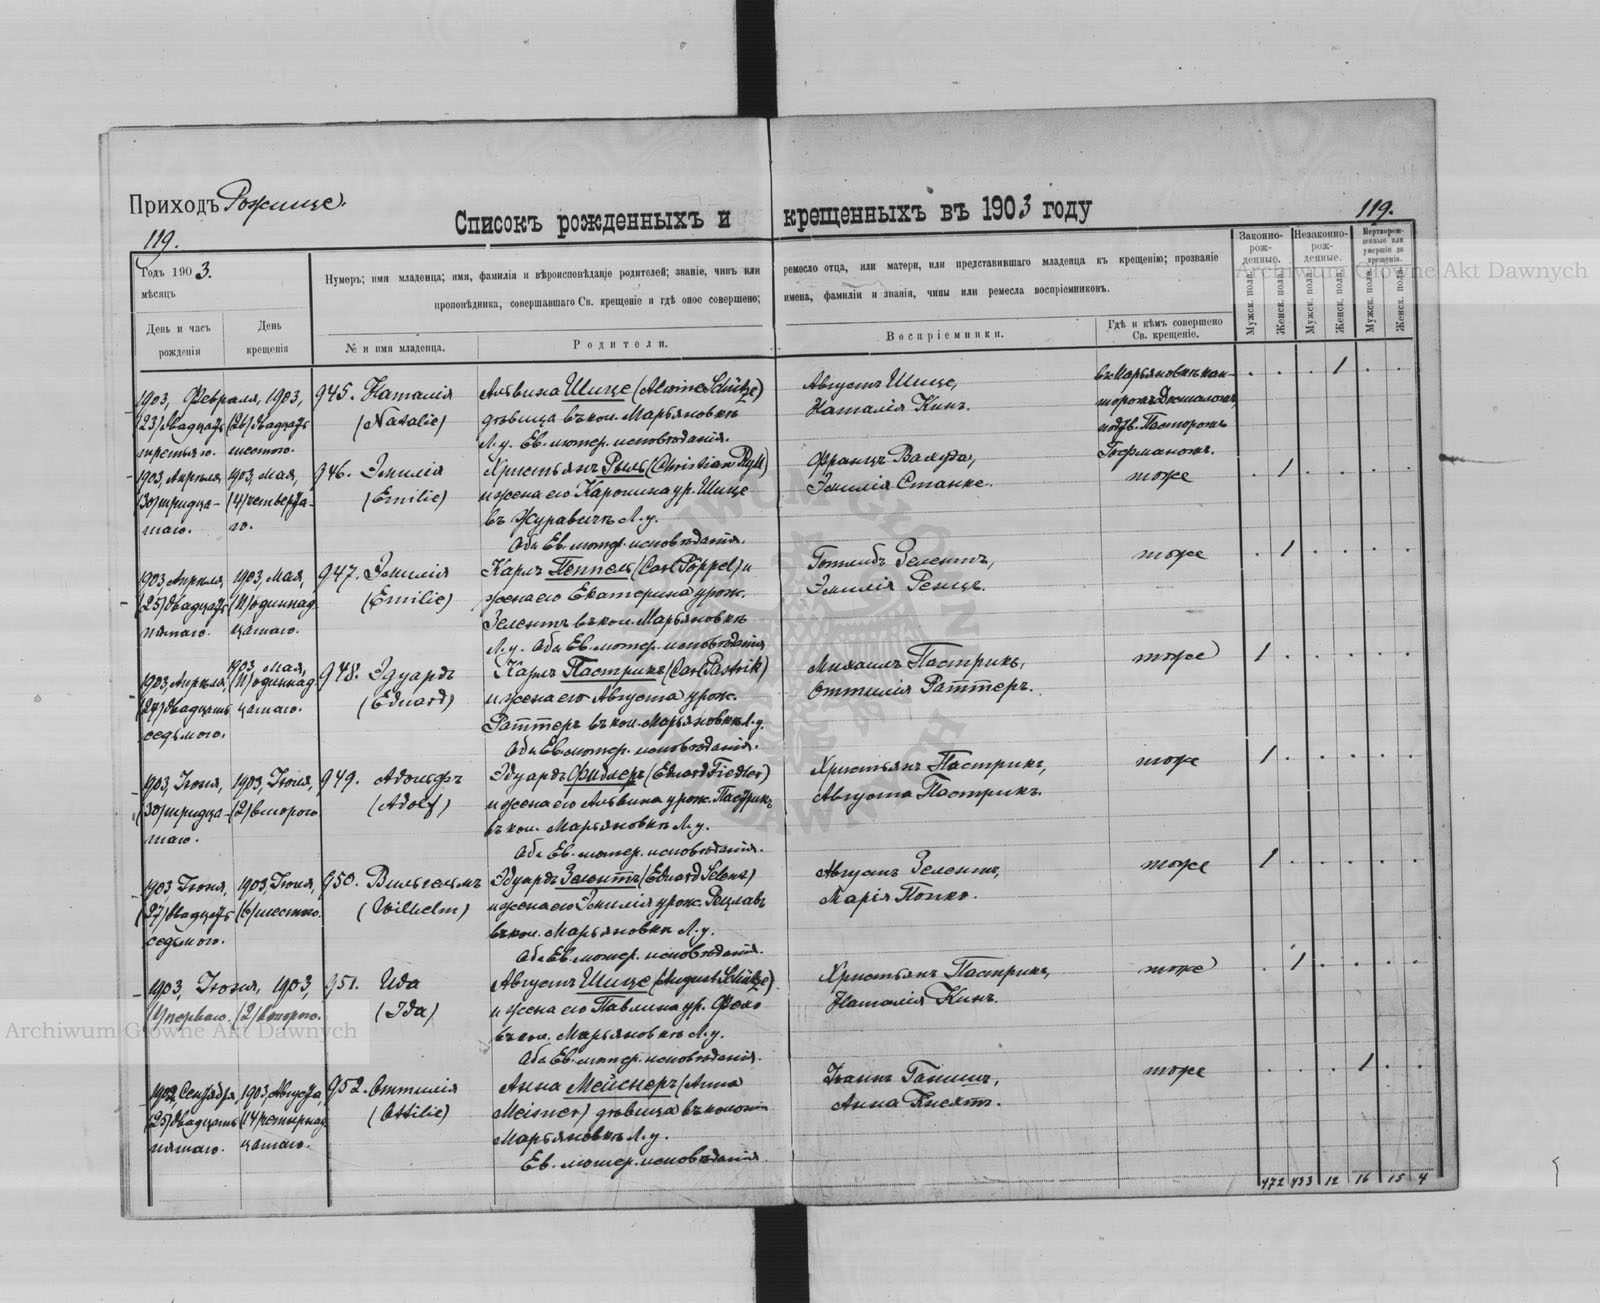 Приходъ Рожище.
119.
Списокъ рожденныхъ и крещенныхъ въ 1903 году
119.
Годъ 1903.
мѣсяцъ
День и часъ рожденія
День крещенія
Нумеръ; имя младенца; имя, фамилія и вѣроисповѣданіе родителей; званіе, чинъ или ремесло отца, или матери, или представившаго младенца къ крещенію; прозваніе
проповѣдника, совершавшаго Св. крещеніе и гдѣ оное совершено; имена, фамиліи и званія, чины или ремесла воспріемниковъ.
№ и имя младенца.
Родители.
Воспріемники.
Гдѣ и кѣмъ совершено Св. крещеніе.
Законно-рож-денные.
Незаконно-рож-денные.
Мертворож-денные или умершіе до крещенія.
Мужск. пола.
Женск. пола.
Мужск. пола.
Женск. пола.
Мужск. пола.
Женск. пола.
1903, Февраля, 1903, 945. Наталія Альвина Шице (Alwine Schütze) Августъ Шице, въ Марьяновкѣ кан-
(23) двадцать (26) двадцать (Natalie) дѣвица въ кол. Марьяновкѣ Наталія Кинъ. торомъ
третьяго. шестого. Л. у. Ев. лютер. исповѣданія. подтв. Пасторомъ
1903, Апрѣля, 1903, Мая, 946. Эмилія Христьянъ Рыль (Christian Ryll) Францъ Гофманомъ.
(30) тридца- (4) четверта- (Emilie) и жена его Каролина ур. Шице Эмилія Станке. тоже 1
таго. го. въ Журавичѣ Л. у.
Оба Ев. лютер. исповѣданія.
1903 Апрѣля, 1903, Мая, 947. Эмилія Карлъ Пеппель (Carl Pöppel) и Готлибъ Зелентъ, тоже 1
(25) двадцать (11) одиннад- (Emilie) жена его Екатерина урож. Эмилія Ренцъ.
пятаго. цатаго. Зелентъ въ кол. Марьяновкѣ
Л. у. Оба Ев. лютер. исповѣданія
1903, Апрѣля, 1903, Мая, 948. Эдуардъ Карлъ Пастрикъ (Carl Pastrik) Михаилъ Пастрикъ, тоже 1
(27) двадцать (11) одиннад- (Eduard) и жена его Августа урож. Оттилія Раттеръ.
седьмого. цатаго. Раттеръ въ кол. Марьяновкѣ Л. у.
Оба Ев. лютер. исповѣданія.
1903, Іюня, 1903, Іюля, 949. Адольфъ Эдуардъ Фидлеръ (Eduard Fiedler) Христьянъ Пастрикъ, тоже 1
(30) тридца- (2) второго (Adolf) и жена его Альвина урож. Пастрикъ Августа Пастрикъ.
таго. въ кол. Марьяновкѣ Л. у.
Оба Ев. лютер. исповѣданія.
1903 Іюня, 1903, Іюля, 950. Вильгельмъ Эдуардъ Зелентъ (Eduard Selent) Августъ Зелентъ, тоже 1
(27) двадцать (6) шестого. (Wilhelm) и жена его Эмилія урож. Рецлавъ Марія Попко.
седьмого. въ кол. Марьяновкѣ Л. у.
Оба Ев. лютер. исповѣданія.
1903, Іюля, 1903, 951. Ида Августъ Шице (August Schütze) Христьянъ Пастрикъ, тоже 1
(1) перваго. (2) второго. (Ida) и жена его Павлина ур. Наталія Кинъ.
въ кол. Марьяновкѣ Л. у.
Оба Ев. лютер. исповѣданія.
1902, Сентября, 1903, Августа, 952. Оттилія Анна Мейснеръ (Anna тоже 1
(25) двадцать (14) четырнад- (Ottilie) Meisner) дѣвица въ колоніи Анна
пятаго. цатаго. Марьяновкѣ Л. у.
Ев. лютер. исповѣданія.
472 433 12 16 15 4
Archiwum Główne Akt Dawnych
Archiwum Główne Akt Dawnych